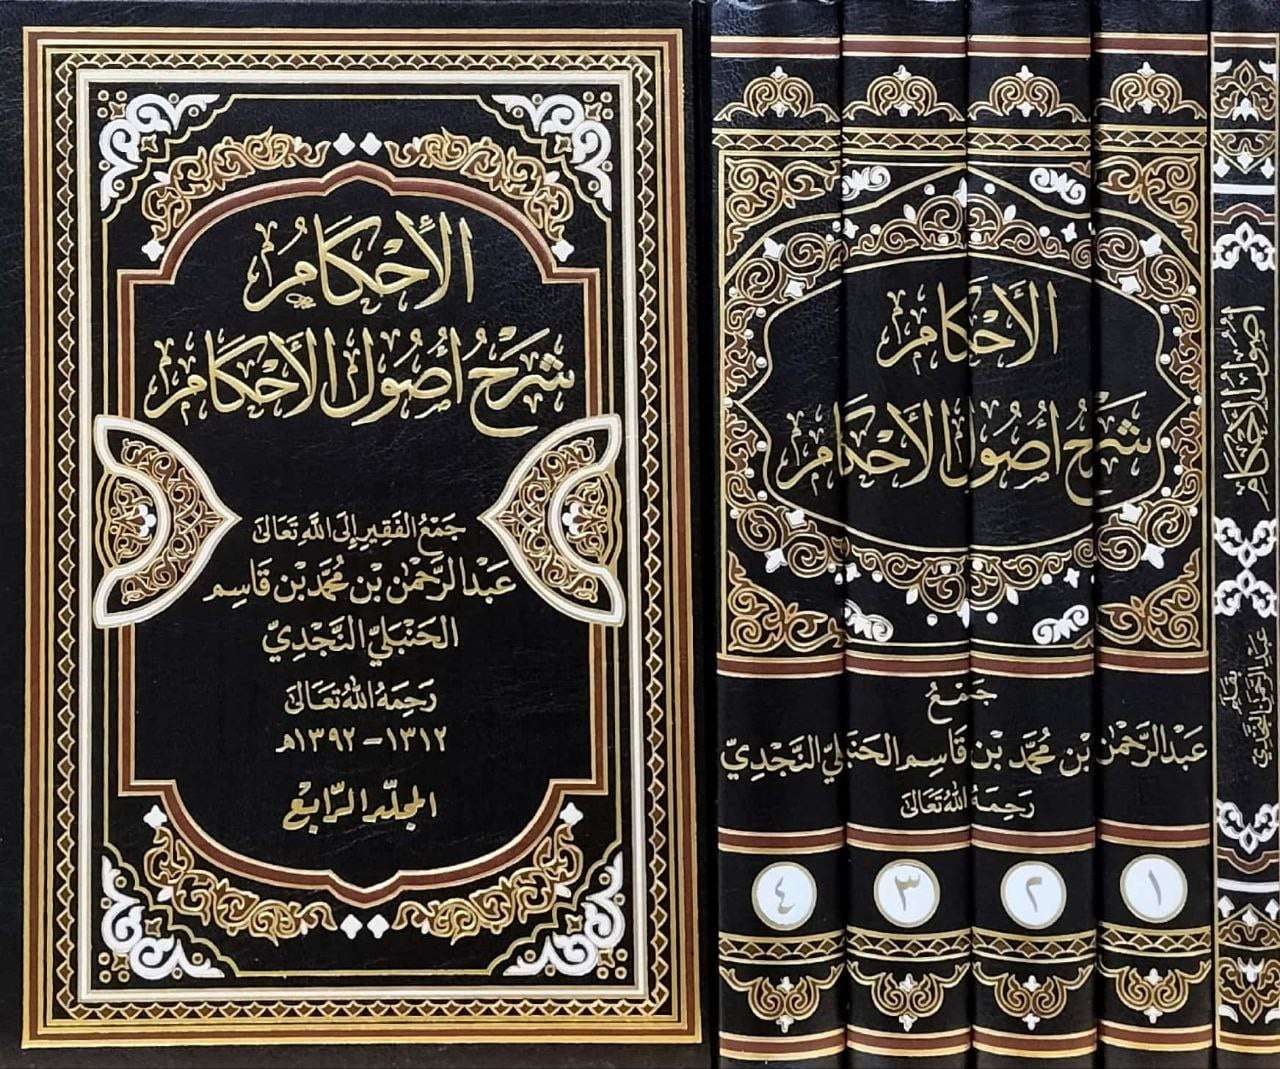 الأَحْكَامُ
شَرْحُ أُصُولِ الأَحْكَامِ
جَمْعُ الفَقِيرِ إِلَى اللَّهِ تَعَالَى
عَبْدالرَّحْمٰنِ بْنِ مُحَمَّد بْن قَاسِم
الحَنْبَلِيّ النَّجْدِيّ
رَحِمَهُ اللَّهُ تَعَالَى
١٣١٢ - ١٣٩٢هـ
المجلّد الرّابع
الأَحْكَام
شَرْحُ أُصُولِ الأَحْكَامِ
جَمْعُ
عَبْدالرَّحْمٰنِ بْنِ مُحَمَّد بْن قَاسِم الحَنْبَلِيّ النَّجْدِيّ
رَحِمَهُ اللَّهُ تَعَالَى
١
٢
٣
٤
أُصُولُ الأَحْكَامِ
بقلم
عبدالرحمن النجدي